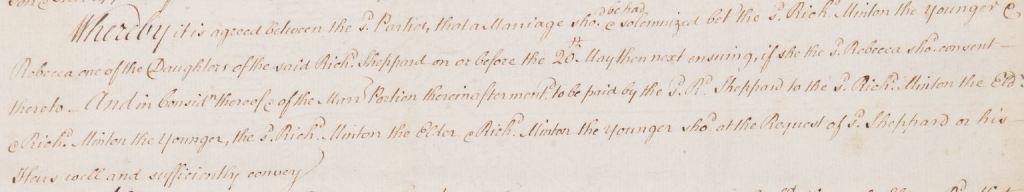 Whereby it is agreed between the s.d Parties, that a Marriage sho.d be had & solemnized bet. the s.d Rich.d Minton the younger &
Rebecca one of the Daughters of the said Rich.d Sheppard on or before the 20th May then next ensuing, if she the s.d Rebecca sho.d consent
thereto. And in Consid.n thereof & of the Marr. Portion thereinafter ment.d to be paid by the s.d R.d Sheppard to the s.d Rich.d Minton the Eld.r
& Rich.d Minton the Younger, the s.d Rich.d Minton the Elder & Rich.d Minton the younger sho.d at the Request of s.d Sheppard or his
Heirs well and sufficiently convey